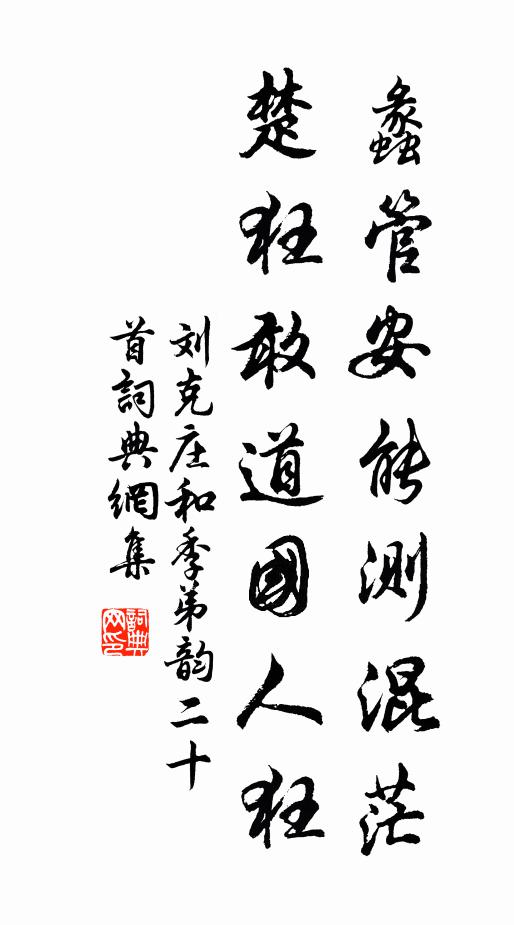 蠡管安能測混茫
楚狂敢道國人狂
刘克庄和季弟韵二十
首詞典網集
詞典